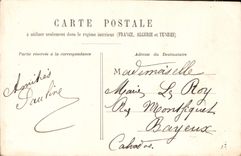 CARTE POSTALE
à utiliser seulement dans le régime intérieur (FRANCE, ALGÉRIE et TUNISIE)
Partie réservée à la correspondance
Adresse du Destinataire
Amitiés
Pauline
Mademoiselle
Marie Le Roy
Bayeux
Calvados